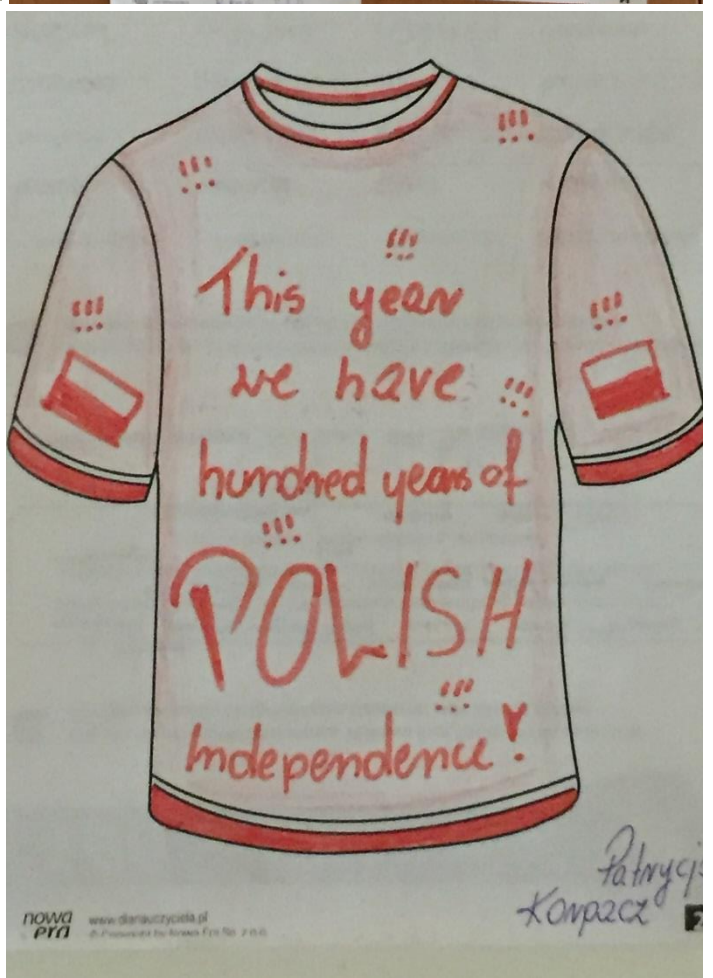 !!!
!!!
!!!
This year
!!!
!!!
we have
!!!
hundred years of
!!!
POLISH
!!!
Independence!
Patrycja
Konpacz
nowa
era
www.dlanauczyciela.pl
© Copyright by Nowa Era Sp. z o.o.